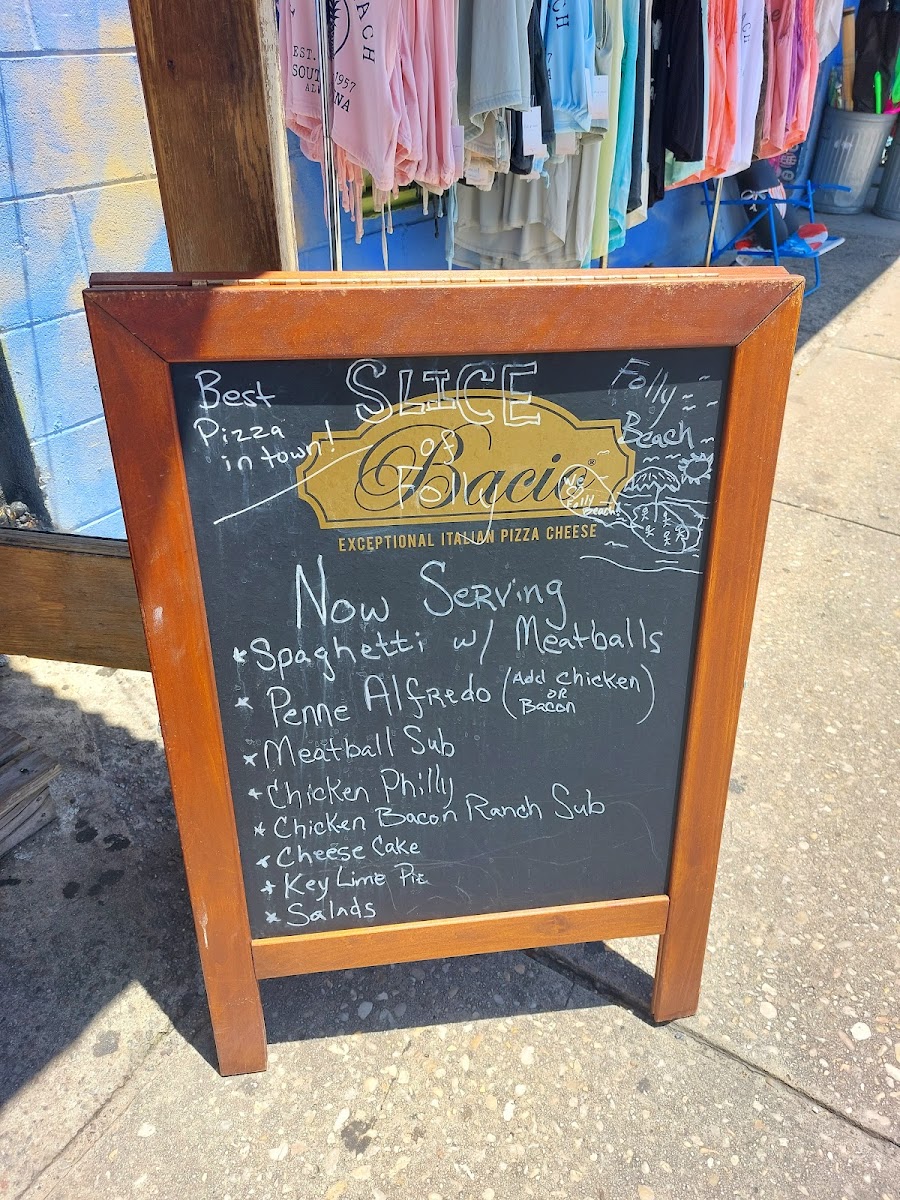 EACH
EST. 1957
SOUT
NA
CH
Best
Pizza
in town!
SLICE
of
Folly
Folly
Beach
Bacio®
We
Folly
Beach!
EXCEPTIONAL ITALIAN PIZZA CHEESE
Now Serving
* Spaghetti w/ Meatballs
* Penne Alfredo (Add chicken
OR
Bacon)
* Meatball Sub
* Chicken Philly
* Chicken Bacon Ranch Sub
* Cheese Cake
* Key Lime Pie
* Salads